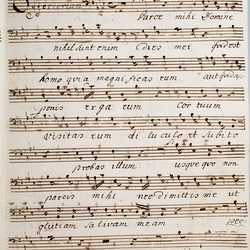 Offertorium
Parce mihi Domine
nihil sunt enim dies mei quid est
homo quia magnificas eum aut quid ap
ponis erga eum Cor tuum
visitas eum di luculo et subito
probas illum usque quo non
parcis mihi nec dimittis me ut
glutiam salivam meam pec